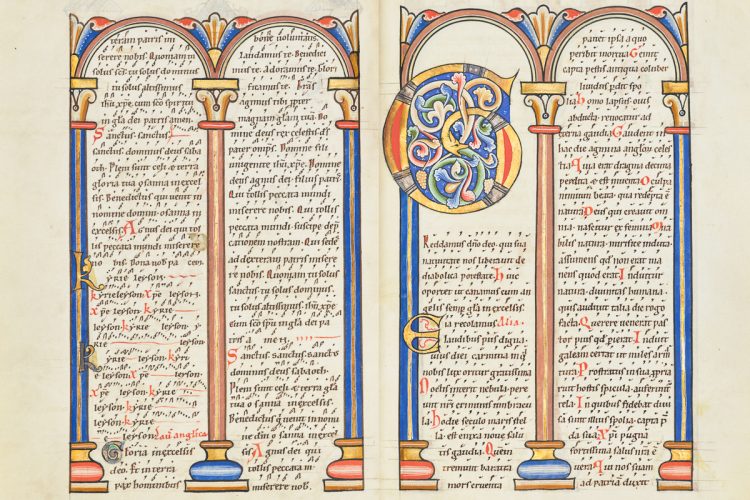 teram patris mi
serere nobis. Quoniam tu
solus scs tu solus dominus
tu solus altissimus
cum sco spiritu
in gla dei patris amen
Sanctus. sanctus.
sanctus. dominus deus saba
oth. Pleni sunt celi & terra
gloria tua osanna in excel
sis. Benedictus qui uenit in
nomine domini. osanna in
excelsis. Agnus dei qui tol
lis peccata mundi miserere
nobis dona nob pa cem
kyrie leyson
kyrieleyson xpe leyson
xpe leyson xpe
leyson kyrie leyson
leyson kyrie
kyrie leyson kyri
leyson kyrie leyson
xpe leyson xpe
leyson xpe leyson kyrie
leyson kyrie leyson
kyrie leyson
Gloria in excelsis
deo. Et in terra
pax hominibus
bone uoluntatis.
Laudamus te. Benedici
mus te. Adoramus te. Glori
ficamus te. Gras
agimus tibi propter
magnam glam tua
Domine deus rex celestis ds
pater omps. Domine fili
unigenite
deus agnus dei filius patris
Qui tollis peccata mundi
miserere nobis.
Qui tollis peccata
mundi. suscipe dep
cationem nostram. Qui sedes
ad dexteram patris misere
re nobis. Quoniam tu solus
sanctus. tu solus dominus.
tu solus altissimus
cum sco spu in gla dei pa
tris a men
Sanctus. sanctus. sanctus
dominus deus sabaoth.
Pleni sunt celi & terra gla
tua osanna in excelsis.
Benedictus qui uenit in no
mine dni osanna in excelsis
Agnus dei qui
tollis peccata mi
serere nob.
Reddamus deo qui sua
natiuitate nos liberauit de
diabolica potestate. huic
oportet ut canamus cum an
gelis semp gla in excelsis.
Ea recolamus
laudibus piis digna
uius diei carmina in q
nobis lux oritur gratissima
Noctis interit nebula pereunt
nri criminis umbracu
la. hodie seculo maris stel
la. est enixa noue salu
tis gaudia. Quem
tremunt baratra
mors cruenta
pauet ipsa a quo
peribit mortua. Gemit
capta pestis antiqua coliber
liuidus pdit spo
lia. homo lapsus ouis
abducta reuocatur ad
eterna gaudia. Gaudent in
hac die agmina angeloru celes
tia. quia erat dragma decima
perdita & est inuenta. O culpa
nimium beata qua redempta e
natura. Deus qui creauit om
nia nascitur ex femina.
Mirabilis natura mirifice induta
assumens quod non erat ma
nens quod erat. Induitur
natura diuinitas humana
quis audiuit talia dic rogo
facta. Querere uenerat pas
tor pius quod perierat. Induit
galeam certat ut miles arma
tura. Prostratus in sua ppria
ruit hostis spicula. auferunt
In quibus fidebat diui
sa sunt illius spolia. capta p
da sua. Xpi pugna
fortissima salus nra e
uera. qui nos suam
ad patria duxit